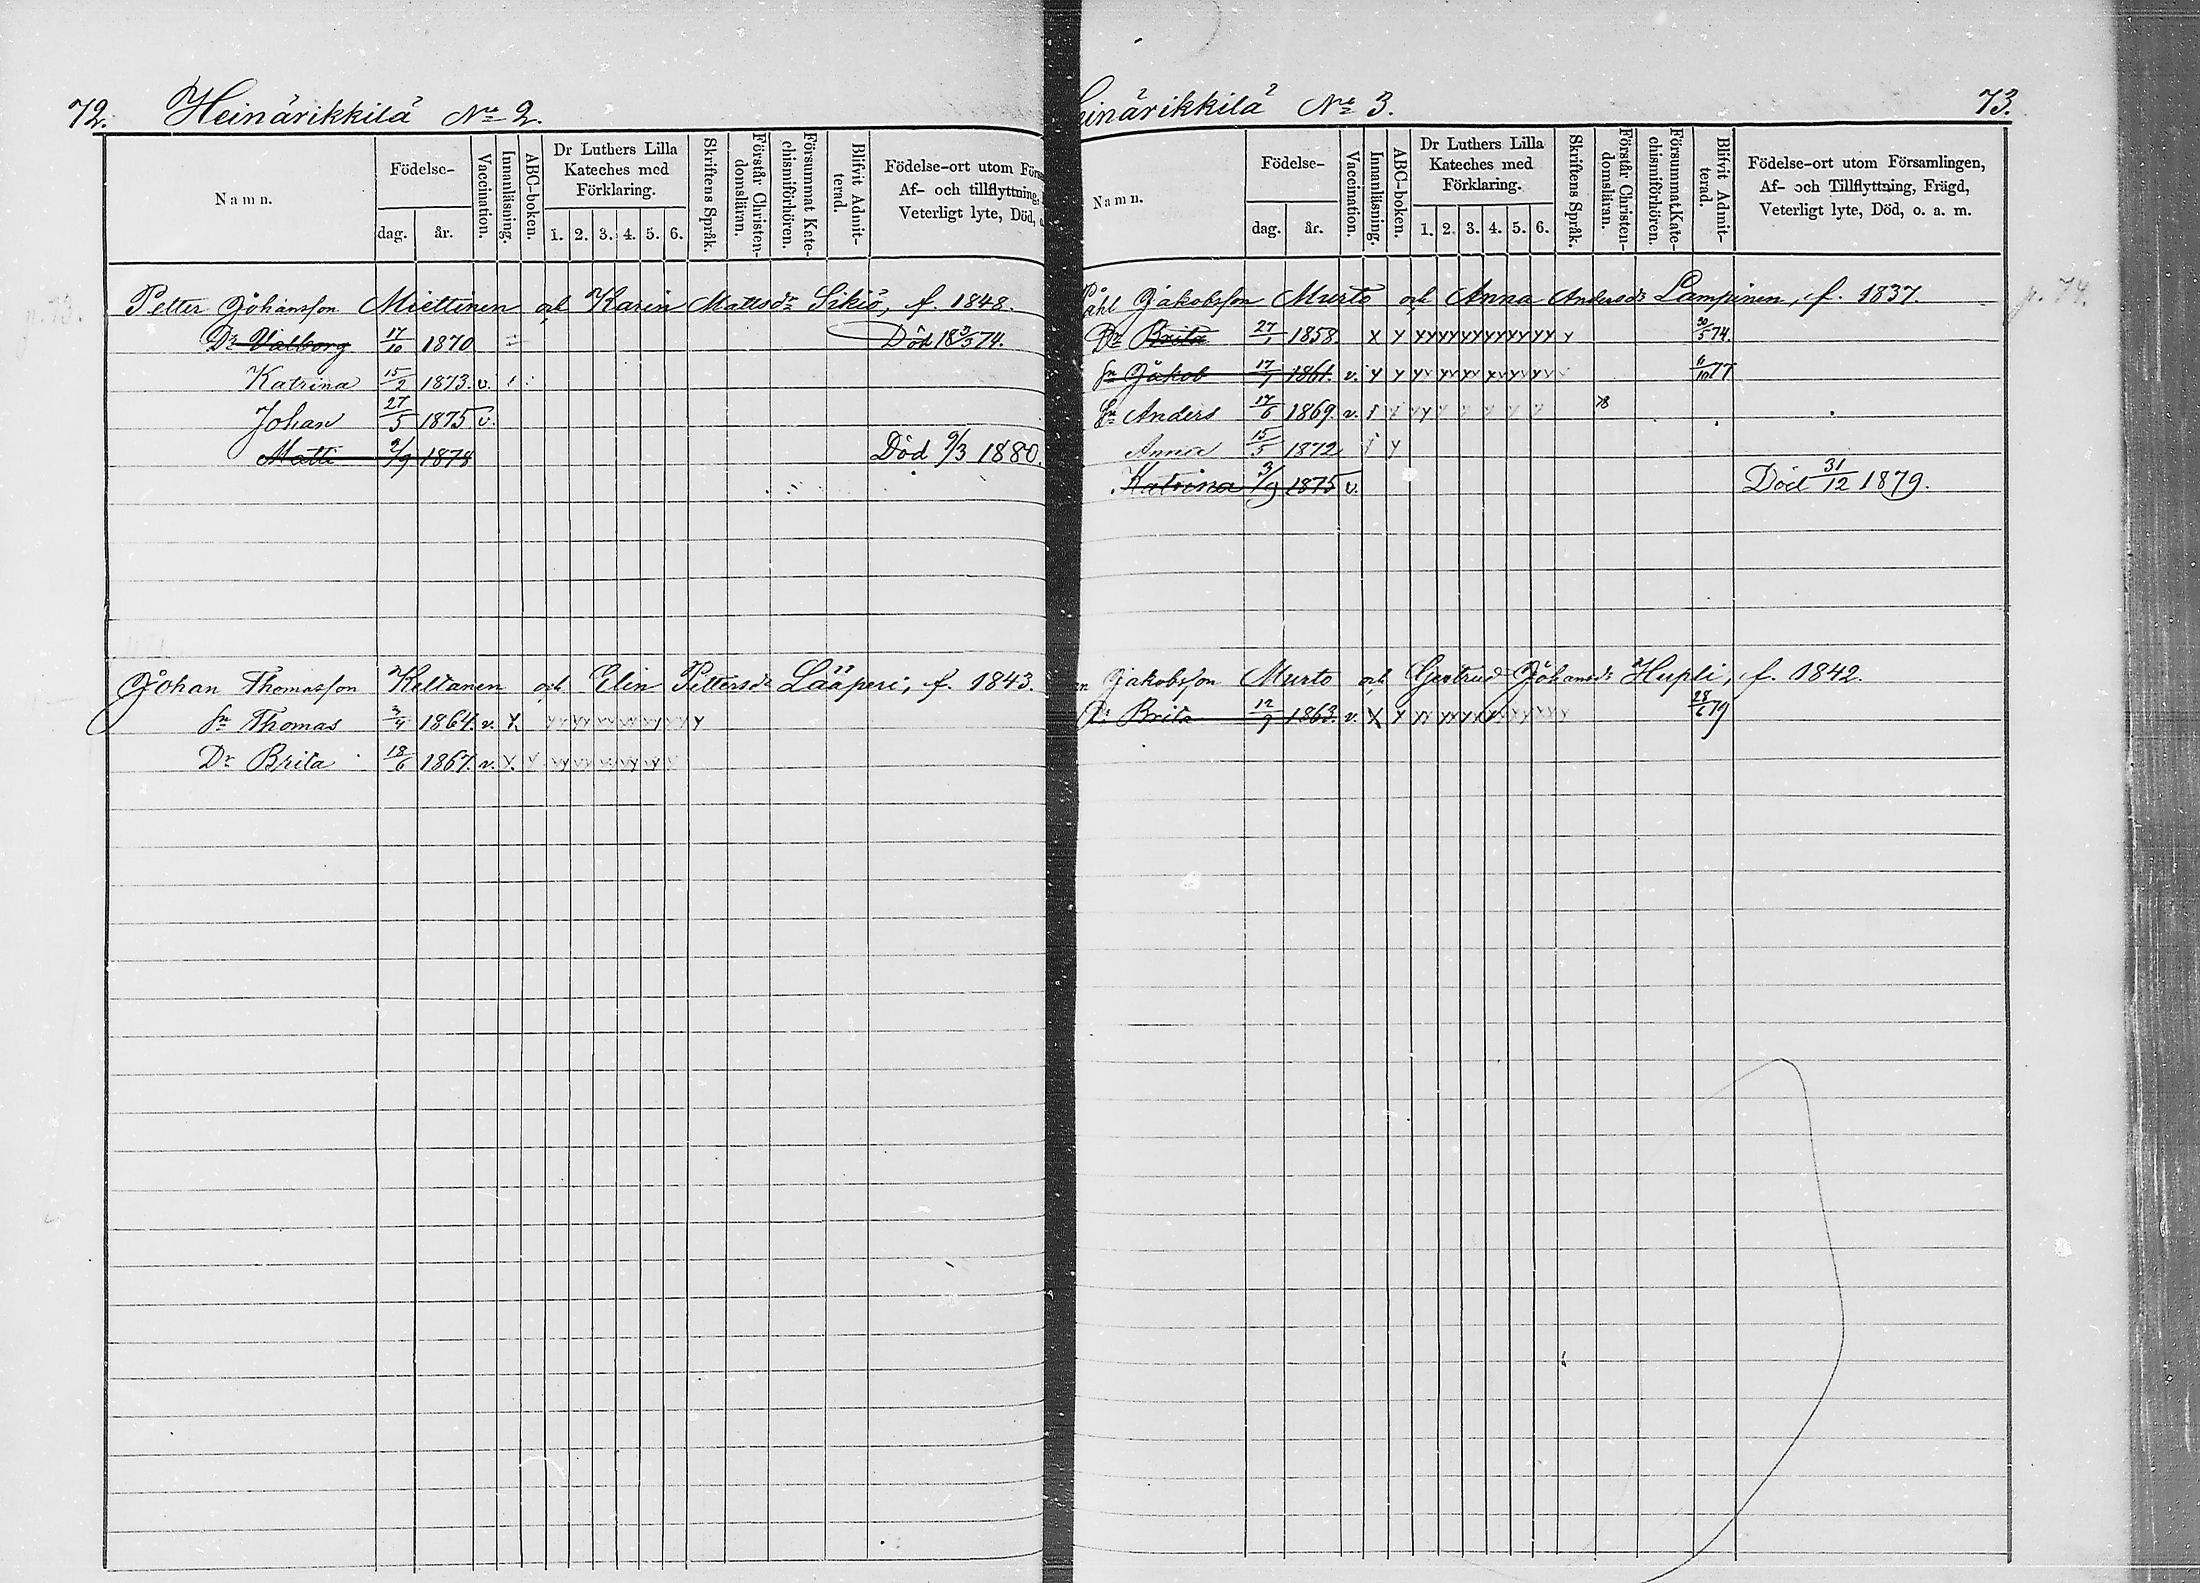 72. Heinärikkilä No 2.
Namn.
Födelse-
dag. år.
Vaccination.
Innanläsning.
ABC-boken.
Dr Luthers Lilla Kateches med Förklaring.
1. 2. 3. 4. 5. 6.
Skriftens Språk.
Förstår Christen-domsläran.
Försummat Kate-chismiförhören.
Blifvit Admit-terad.
Födelse-ort utom Förs
Af- och tillflyttning,
Veterligt lyte, Död,
Petter Johansson Miettinen och Karin Mattsdr Sikiö, f. 1848.
Dr Valborg 17/10 1870 Död 18 9/3 74.
Katrina 15/2 1873. v.
Johan 27/5 1875 v.
Matti 2/9 1878 Död 9/3 1880.
Johan Thomasson Keltanen och Elin Pettersdr Lääperi, f. 1843.
Sn Thomas 3/4 1864. v. Y.
Dr Brita 18/6 1867. v. Y.
einärikkilä No 3. 73.
Namn.
Födelse-
dag. år.
Vaccination.
Innanläsning.
ABC-boken.
Dr Luthers Lilla Kateches med Förklaring.
1. 2. 3. 4. 5. 6.
Skriftens Språk.
Förstår Christen-domsläran.
Försummat Kate-chismiförhören.
Blifvit Admit-terad.
Födelse-ort utom Församlingen,
Af- och Tillflyttning, Frägd,
Veterligt lyte, Död, o. a. m.
Påhl Jakobsson Murto och Anna Andersdr Lampinen, f. 1837. p. 74.
Dr Brita 27/1 1858. 30/5 74.
Sn Jakob 17/7 1861. v. 6/10 77
Sn Anders 17/6 1869. v. 78
Anna 15/5 1872
Katrina 3/9 1875 v. Död 31/12 1879.
n Jakobsson Murto och Gertrud Johansdr Hupli, f. 1842.
Dr Brita 12/9 1863. v. 28/6 79